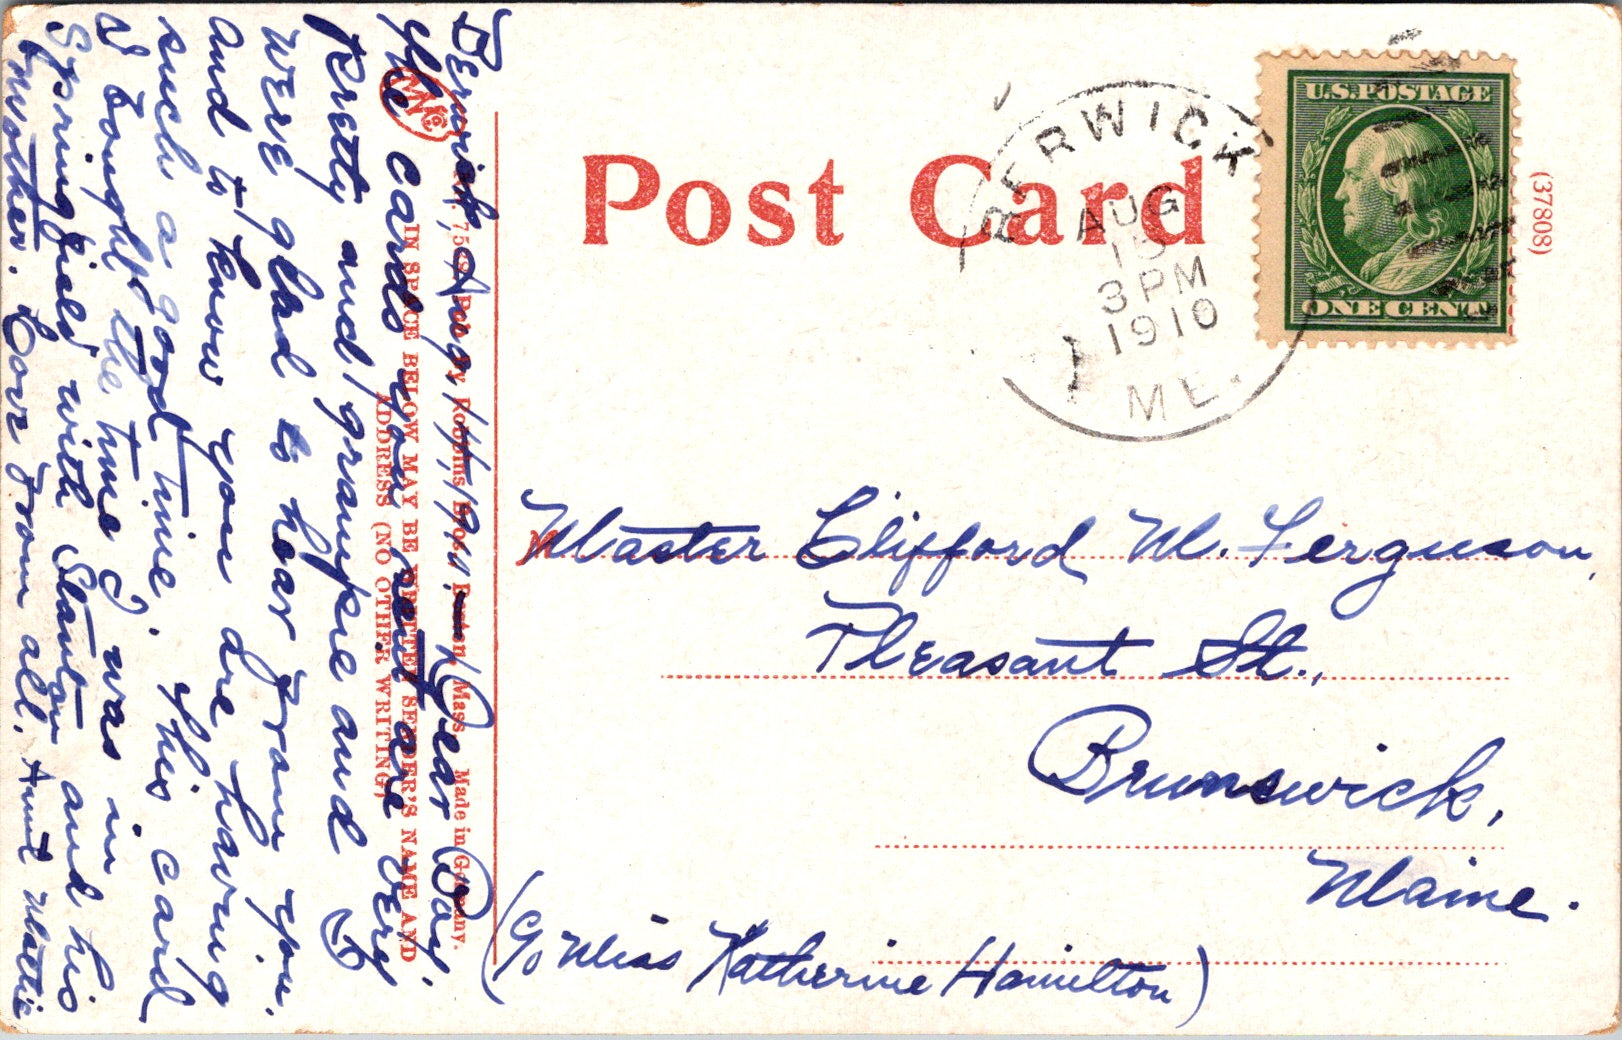 Post Card
(37808)
U.S. POSTAGE
ONE CENT
BERWICK
AUG
15
3 PM
1910
ME.
Master Clifford M. Ferguson,
Pleasant St.,
Brunswick,
Maine.
(c/o Miss Katherine Hamilton)
Pub. by Robbins Bros. Boston, Mass. Made in Germany.
IN SPACE BELOW MAY BE WRITTEN SENDER'S NAME AND
ADDRESS (NO OTHER WRITING)
Berwick, Aug. 14, Dear Boy.
The cards you sent are very
pretty and grampie and I
were glad to hear from you.
And to know you are having
such a good time. This card
I bought the time I was in
Springfield with Stanton and his
mother. Love from all. Aunt Mattie